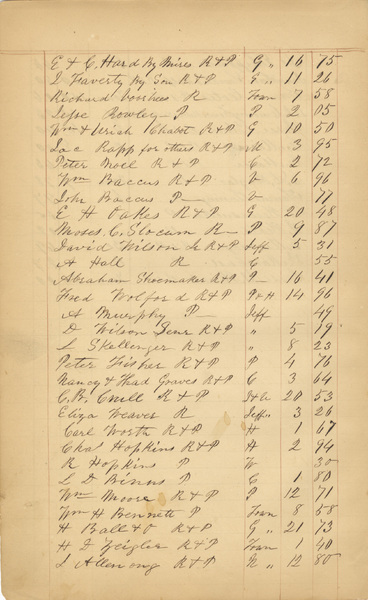 E & C. Hard By Mires R & P G " 16 75
I Faverty By Son R & P G " 11 26
Richard Voshees R Fran 7 58
Jesse Rowley - P P 2 05
Wm & Uriah Chabot R & P G 10 50
Isac Rapp for others R & P M 3 95
Peter Noel R & P C 2 72
Wm Baccus R & P V 6 96
John Baccus P - V 77
E H Oakes R & P G 20 48
Moses C. Slocum R - P 9 87
David Wilson Jr R & P Jeff 5 31
A Hall R C 55
Abraham Shoemaker R & P P - 16 41
Fred Wolford R & P P & H 14 96
A Murphy P - Jeff 49
D Wilson Senr R & P " 5 79
L Skellenger R & P " 8 23
Peter Fisher R & P P 4 76
Nancy & Thad Graves R & P C 3 64
C. B. R & P 20 53
Eliza Weaver R Jeffn 3 26
Carl Worth R & P H 1 67
Chas Hopkins R & P H 2 94
R Hopkins P W 30
L D Binns P C 1 80
Wm Moore R & P P 12 71
Wm H Bennett P Fran 8 58
H Ball & O R & P G " 21 73
H D Zeigler R & P Fran 1 40
R & P 12 80